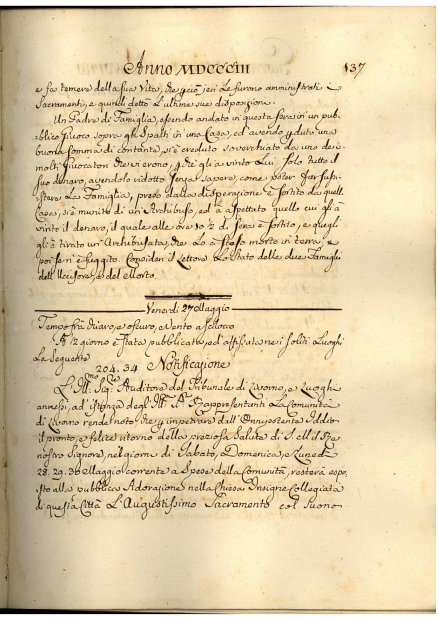 Anno MDCCCIII 137
e fa temere della sua Vita, che perciò jeri le furono amministrati i
Sacramenti, e quindi dettò l'ultime sue disposizione.
Un Padre di Famiglia, essendo andato in questa sera in un pub=
blico Giuoco sopra gli Spalti in una Casa, ed avendo perduto una
buona somma di contante, si è creduto soverchiato da uno dei
molti Giuocatori che vi erono, perchè gli à vinto Lui solo tutto il
suo denaro, avendolo ridotto senza sapere, come poter far sussi=
stere La Famiglia, preso dalla disperazione è sortito da quella
Casa, si è munito di un'Archibuso, ed à aspettato quello cui gli à
vinto il denaro, il quale alle ore 10 ½ di sera è sortito, e quegli
gli à tirato un'Archibusata, che Lo à steso morto in terra, e
poi se n'è fuggito. Consideri il Lettore Lo stato delle due Famiglie
dell'Uccisore, e del Morto.
Venerdì 27 Maggio
Tempo frà chiaro, e oscuro, e Vento a Scilocco
A ½ giorno è stata pubblicata, ed affissata nei soliti Luoghi
La Seguente
204. 34 Notificazione
L'Ill.mo Sig.re Auditore del Tribunale di Livorno, e Luoghi
annessi, ad istanza degl'Ill.mi SS.ri Rappresentanti La Comunità
di Livorno rende noto, che per impetrare dall'Onnipotente Iddio
il pronto, e felice ritorno della preziosa Salute di S. M. il Rè
nostro Signore, nel giorno di Sabato, Domenica, e Lunedì
28. 29. 30 Maggio corrente a Spese della Comunità, resterà espo=
sto alla pubblica Adorazione nella Chiesa Insigne Collegiata
di questa Città L'Augustissimo Sacramento col suono